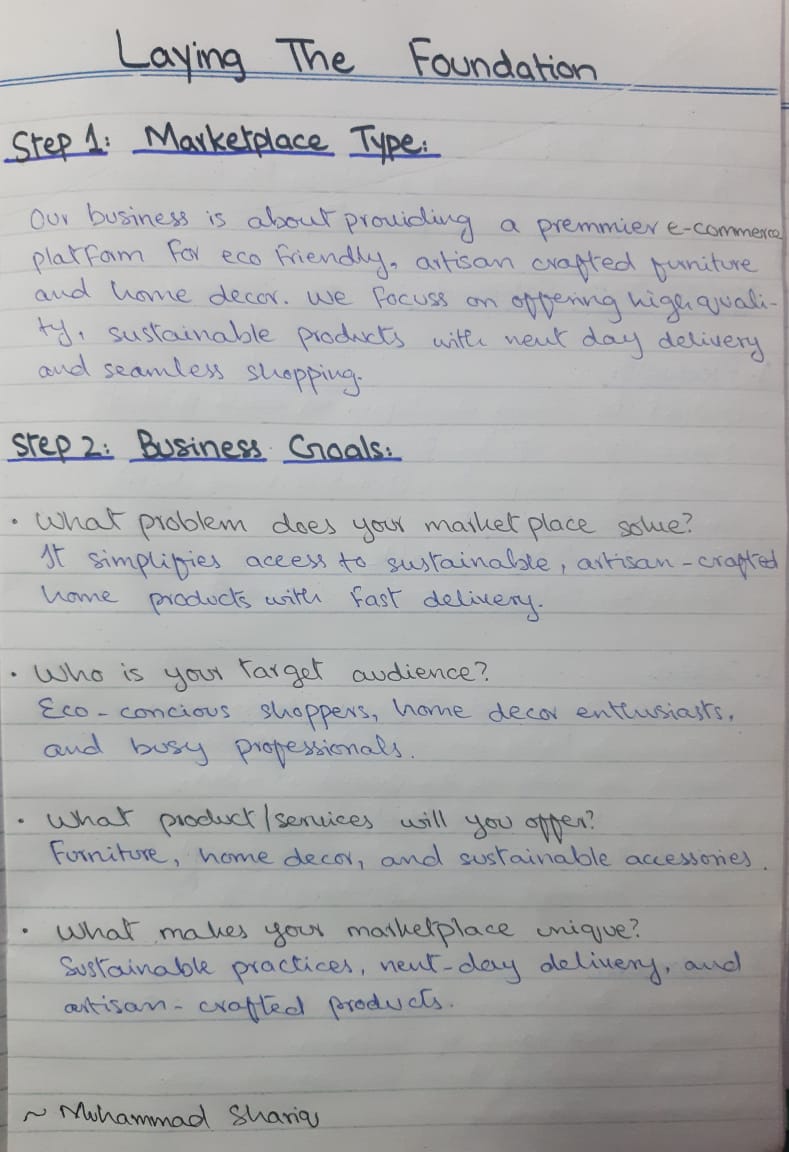 Laying The Foundation
Step 1: Marketplace Type:
Our business is about providing a premmier e-commerce
platform for eco friendly, artisan crafted furniture
and home decor. We focuss on offering high quali-
ty, sustainable products with next day delivery
and seamless shopping.
Step 2: Business Goals:
• What problem does your market place solve?
It simplifies acess to sustainable, artisan-crafted
home products with fast delivery.
• Who is your target audience?
Eco-concious shoppers, home decor enthusiasts,
and busy professionals.
• What product/services will you offer?
Furniture, home decor, and sustainable accessories.
• What makes your marketplace unique?
Sustainable practices, next-day delivery, and
artisan-crafted products.
~ Muhammad Shariq